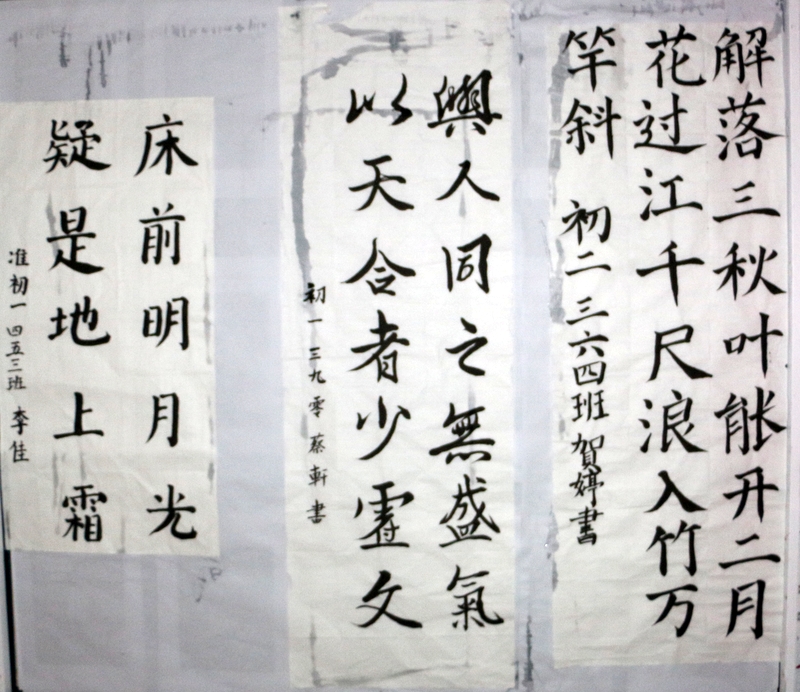 解落三秋叶能开二月
花过江千尺浪入竹万
竿斜 初二三六四班 賀婷書
與人同之無盛氣
以天合者少文
初一三九零 蔡軒書
床前明月光
疑是地上霜
准初一四五三班 李佳